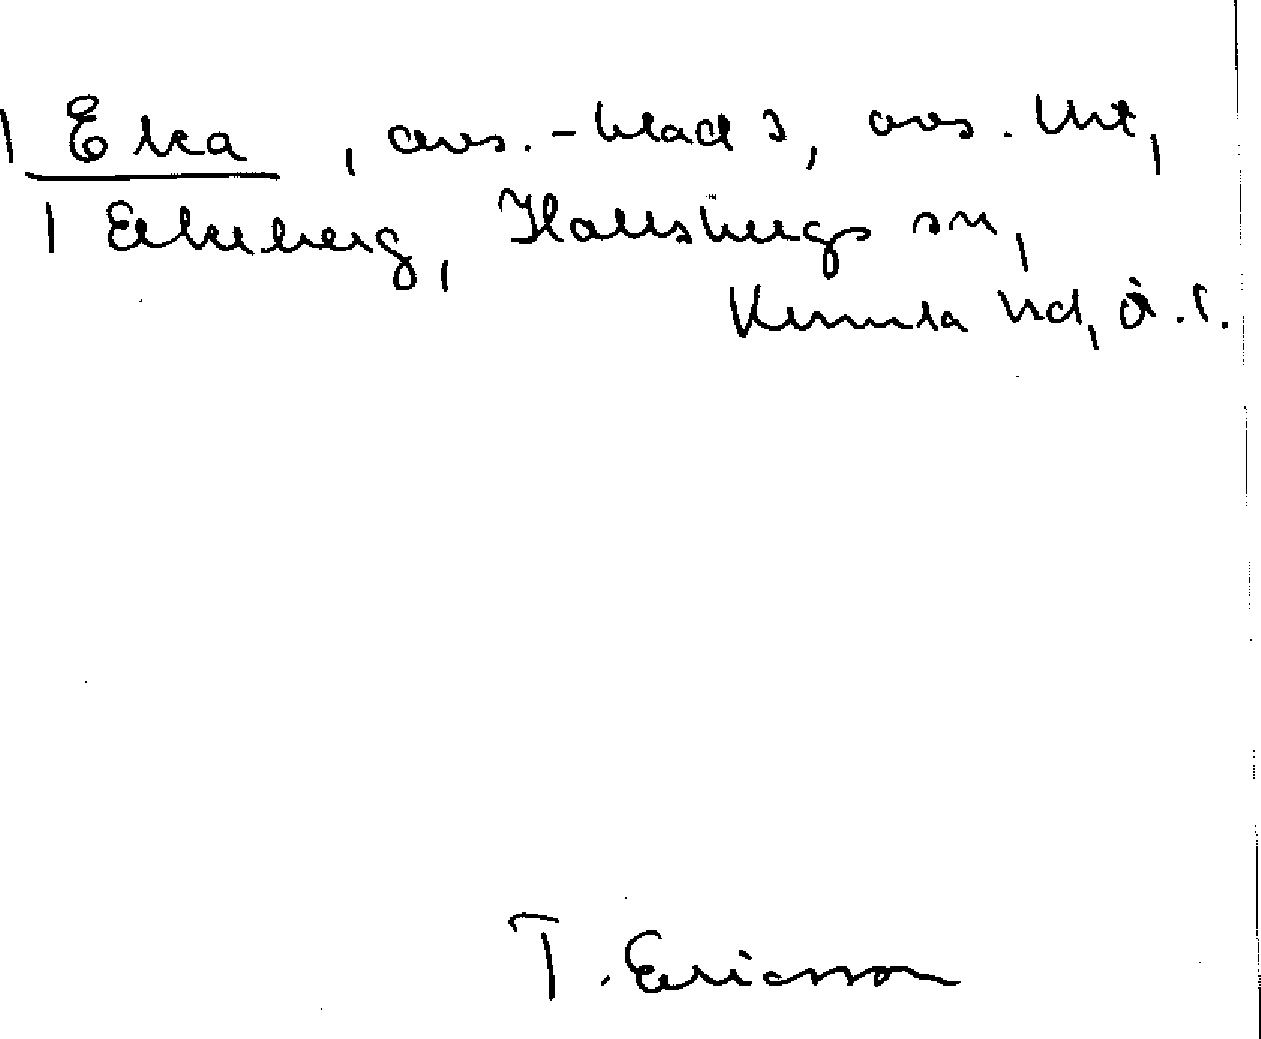 Eka, avs.-blad 3, avs. Utt,
Ekeberg, Hallsbergs sn,
Kumla hd, ö.l.
T. Ericsson